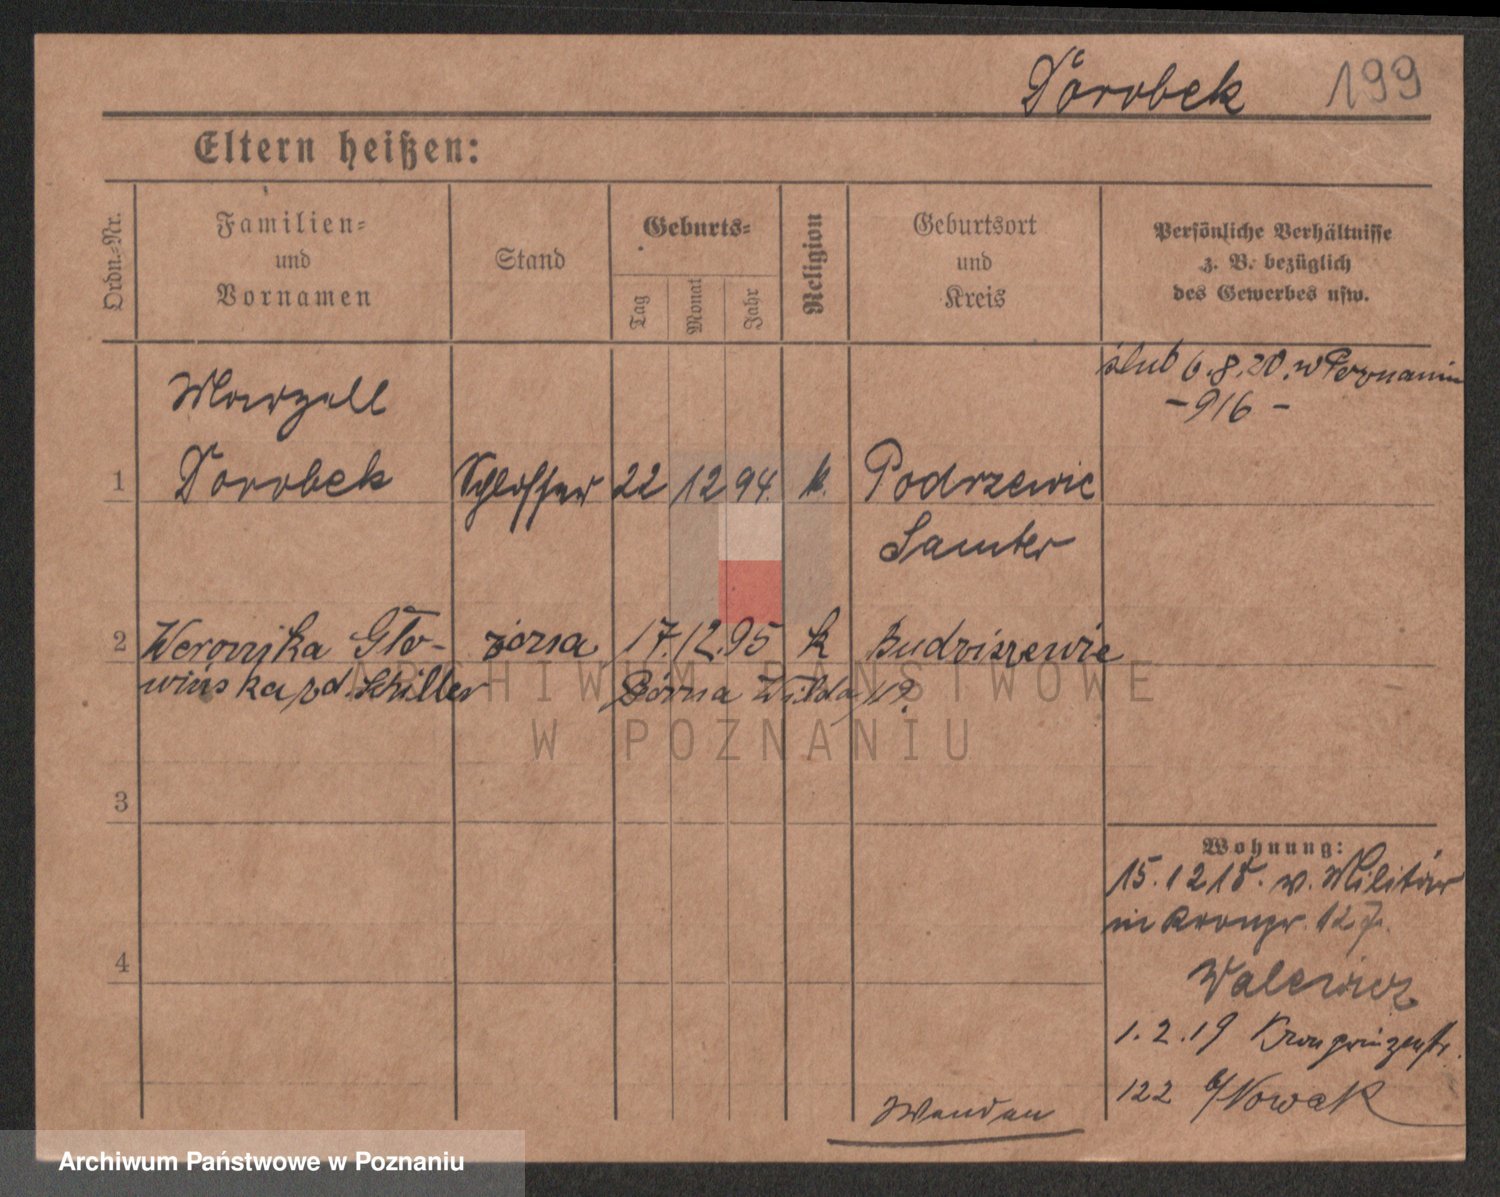 Dorobek 199
Eltern heißen:
Ordn.-Nr.
Familien-
und
Vornamen
Stand
Geburts-
Tag
Monat
Jahr
Religion
Geburtsort
und
Kreis
Persönliche Verhältnisse
z. B. bezüglich
des Gewerbes usw.
ślub 6.8.20. w Poznaniu
- 916 -
Marzell
1 Dorobek Schlosser 22 12 94 k. Podrzewie
Samter
2 Weronika Gło- żona 17.12.95 k Budziszewie
wińska zd. Schiller Górna Wilda 19.
3
4
Wohnung:
15.12 18. v. Militär
in Kronpr. 127.
Walewicz
1.2.19 Kronprinzenstr.
122 b/Nowak
Wenden
ARCHIWUM PAŃSTWOWE
W POZNANIU
Archiwum Państwowe w Poznaniu